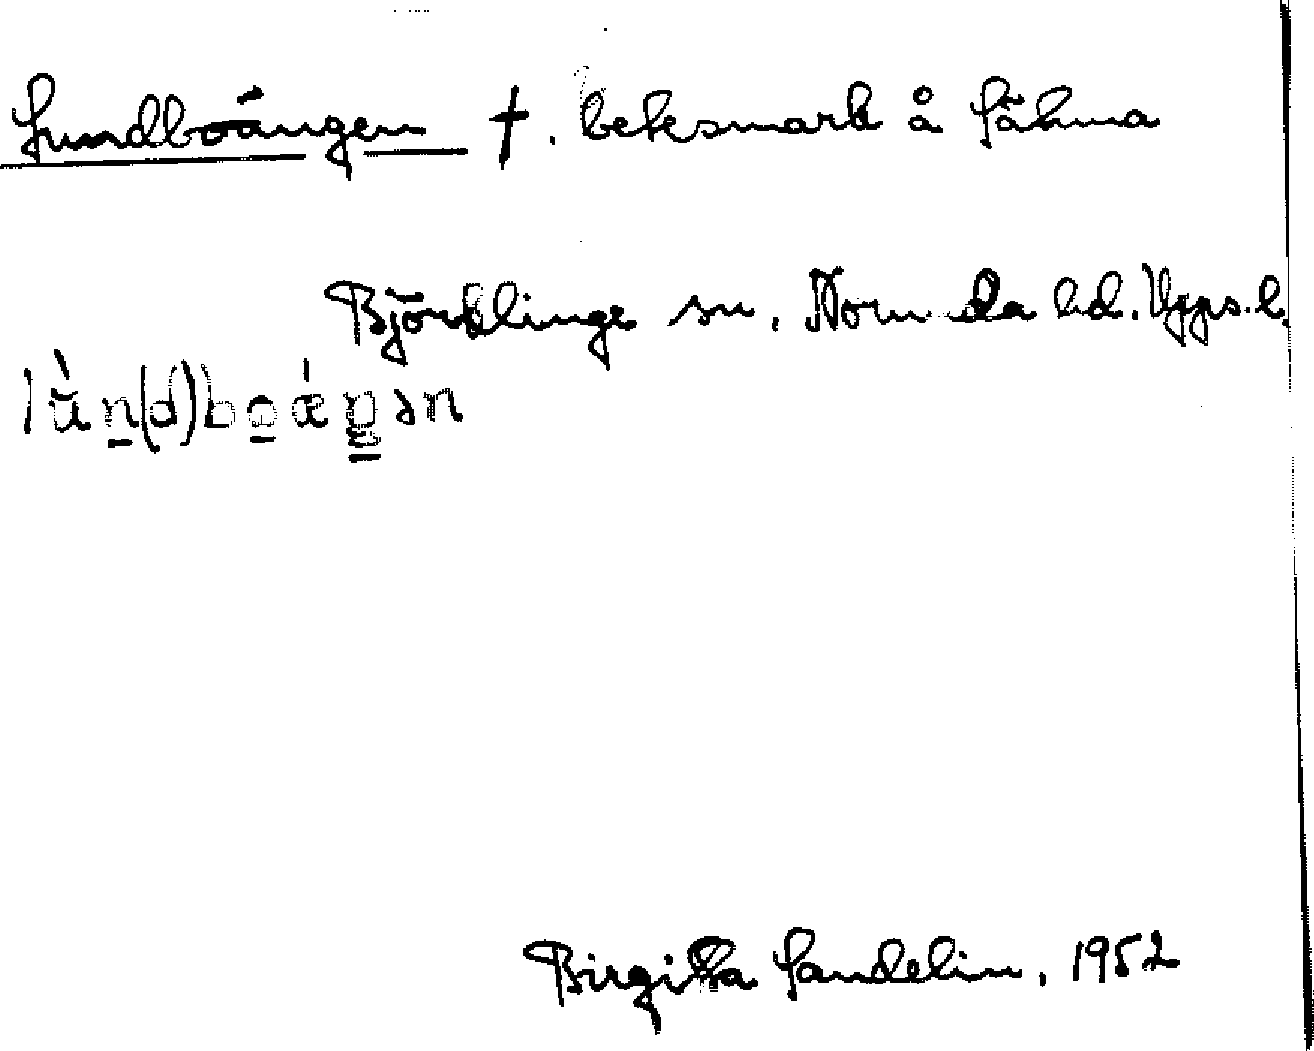 Lundboängen †. betesmark å Sähma
Björklinge sn. Norunda hd. Upps. l.
lùn(d)boǽŋən
Birgitta Sandelin, 1952